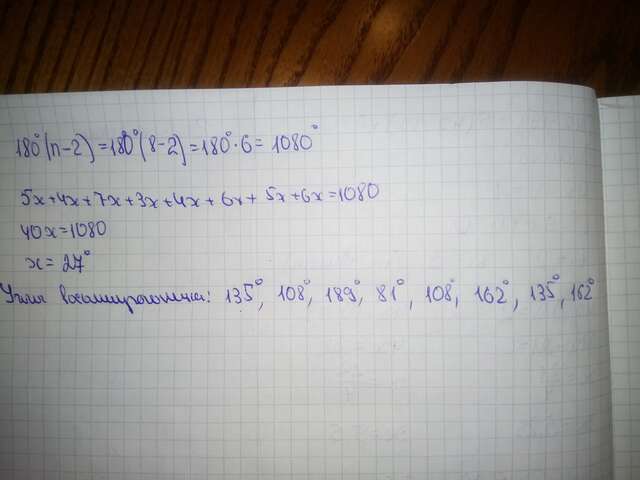 180°(n-2)=180°(8-2)=180°·6=1080°
5x+4x+7x+3x+4x+6x+5x+6x=1080
40x=1080
x=27°
Углы восьмиугольника: 135°, 108°, 189°, 81°, 108°, 162°, 135°, 162°